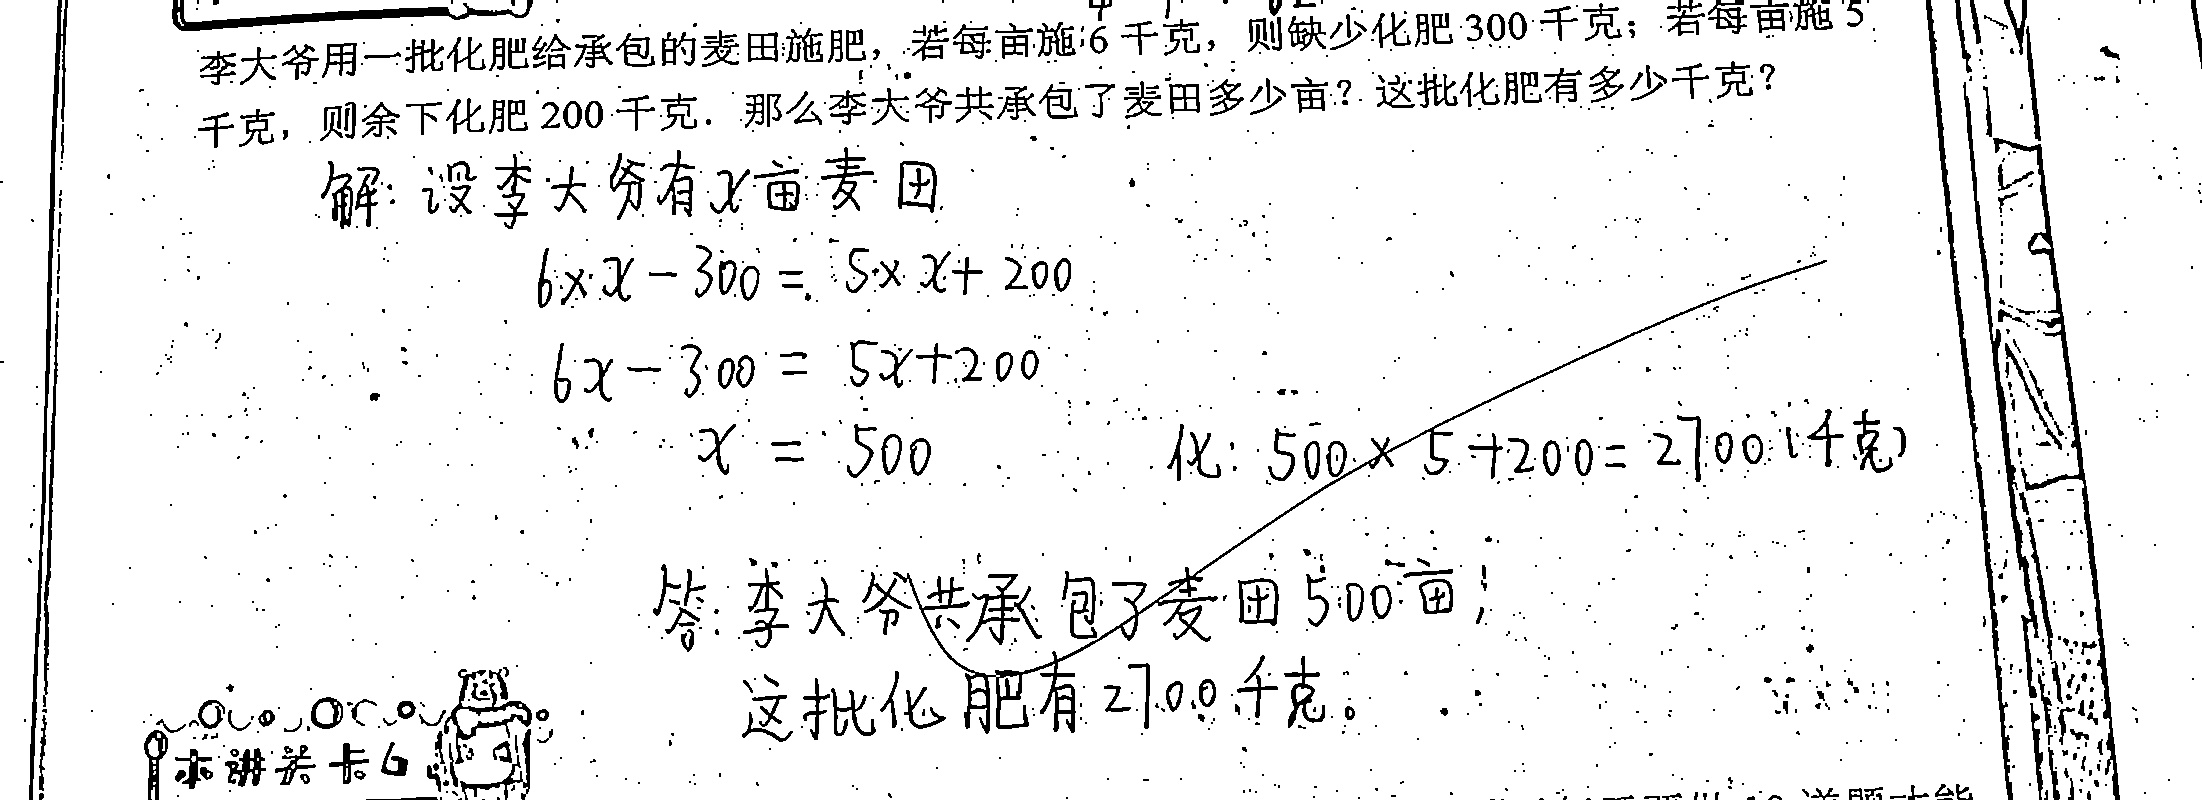 李大爷用一批化肥给承包的麦田施肥，若每亩施6千克，则缺少化肥300千克；若每亩施5
千克，则余下化肥200千克．那么李大爷共承包了麦田多少亩？这批化肥有多少千克？
解：设李大爷有x亩麦田
6×x-300=5×x+200
6x-300=5x+200
x=500
化：500×5+200=2700（千克）
答：李大爷共承包了麦田500亩；
这批化肥有2700千克。
本讲关卡6